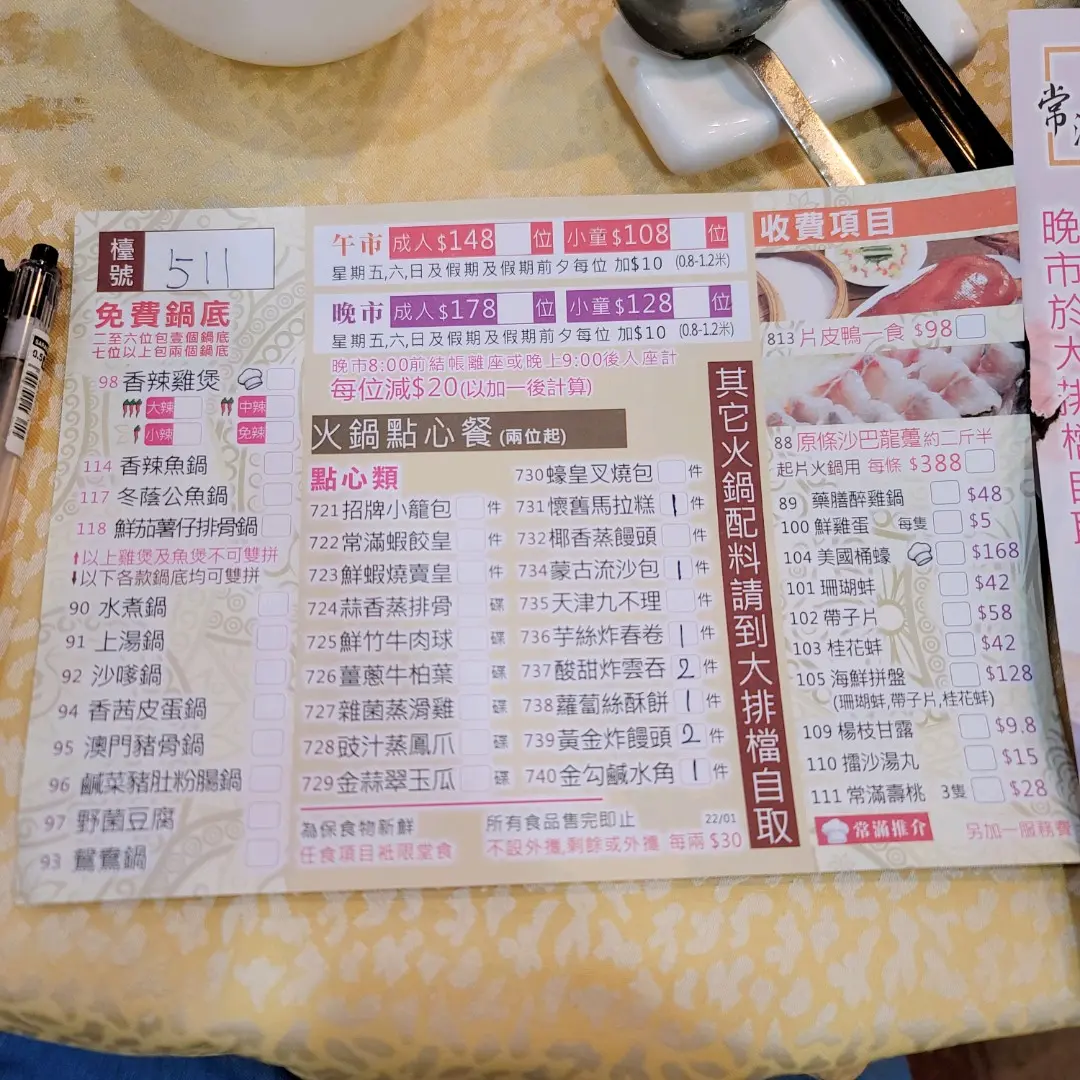 檯號 511
免費鍋底
二至六位包壹個鍋底
七位以上包兩個鍋底
98 香辣雞煲
大辣 中辣
小辣 免辣
114 香辣魚鍋
117 冬蔭公魚鍋
118 鮮茄薯仔排骨鍋
以上雞煲及魚煲不可雙拼
以下各款鍋底均可雙拼
90 水煮鍋
91 上湯鍋
92 沙嗲鍋
94 香茜皮蛋鍋
95 澳門豬骨鍋
96 鹹菜豬肚粉腸鍋
97 野菌豆腐
93 鴛鴦鍋
午市 成人$148 位 小童$108 位
星期五,六,日及假期及假期前夕每位 加$10 (0.8-1.2米)
晚市 成人$178 位 小童$128 位
星期五,六,日及假期及假期前夕每位 加$10 (0.8-1.2米)
晚市8:00前結帳離座或晚上9:00後入座計
每位減$20(以加一後計算)
火鍋點心餐(兩位起)
點心類
721 招牌小籠包 件
722 常滿蝦餃皇 件
723 鮮蝦燒賣皇 件
724 蒜香蒸排骨 碟
725 鮮竹牛肉球 碟
726 薑蔥牛柏葉 碟
727 雜菌蒸滑雞 碟
728 豉汁蒸鳳爪 碟
729 金蒜翠玉瓜 碟
730 蠔皇叉燒包 件
731 懷舊馬拉糕 1 件
732 椰香蒸饅頭 件
734 蒙古流沙包 1 件
735 天津九不理 件
736 芋絲炸春卷 1 件
737 酸甜炸雲吞 2 件
738 蘿蔔絲酥餅 1 件
739 黃金炸饅頭 2 件
740 金勾鹹水角 1 件
為保食物新鮮
任食項目衹限堂食
所有食品售完即止 22/01
不設外攜,剩餘或外攜 每兩 $30
其它火鍋配料請到大排檔自取
收費項目
813 片皮鴨一食 $98
88 原條沙巴龍躉 約二斤半
起片火鍋用 每條 $388
89 藥膳醉雞鍋 $48
100 鮮雞蛋 每隻 $5
104 美國桶蠔 $168
101 珊瑚蚌 $42
102 帶子片 $58
103 桂花蚌 $42
105 海鮮拼盤 $128
(珊瑚蚌,帶子片,桂花蚌)
109 楊枝甘露 $9.8
110 擂沙湯丸 $15
111 常滿壽桃 3隻 $28
常滿推介 另加一服務費
常
晚市於大排檔自取